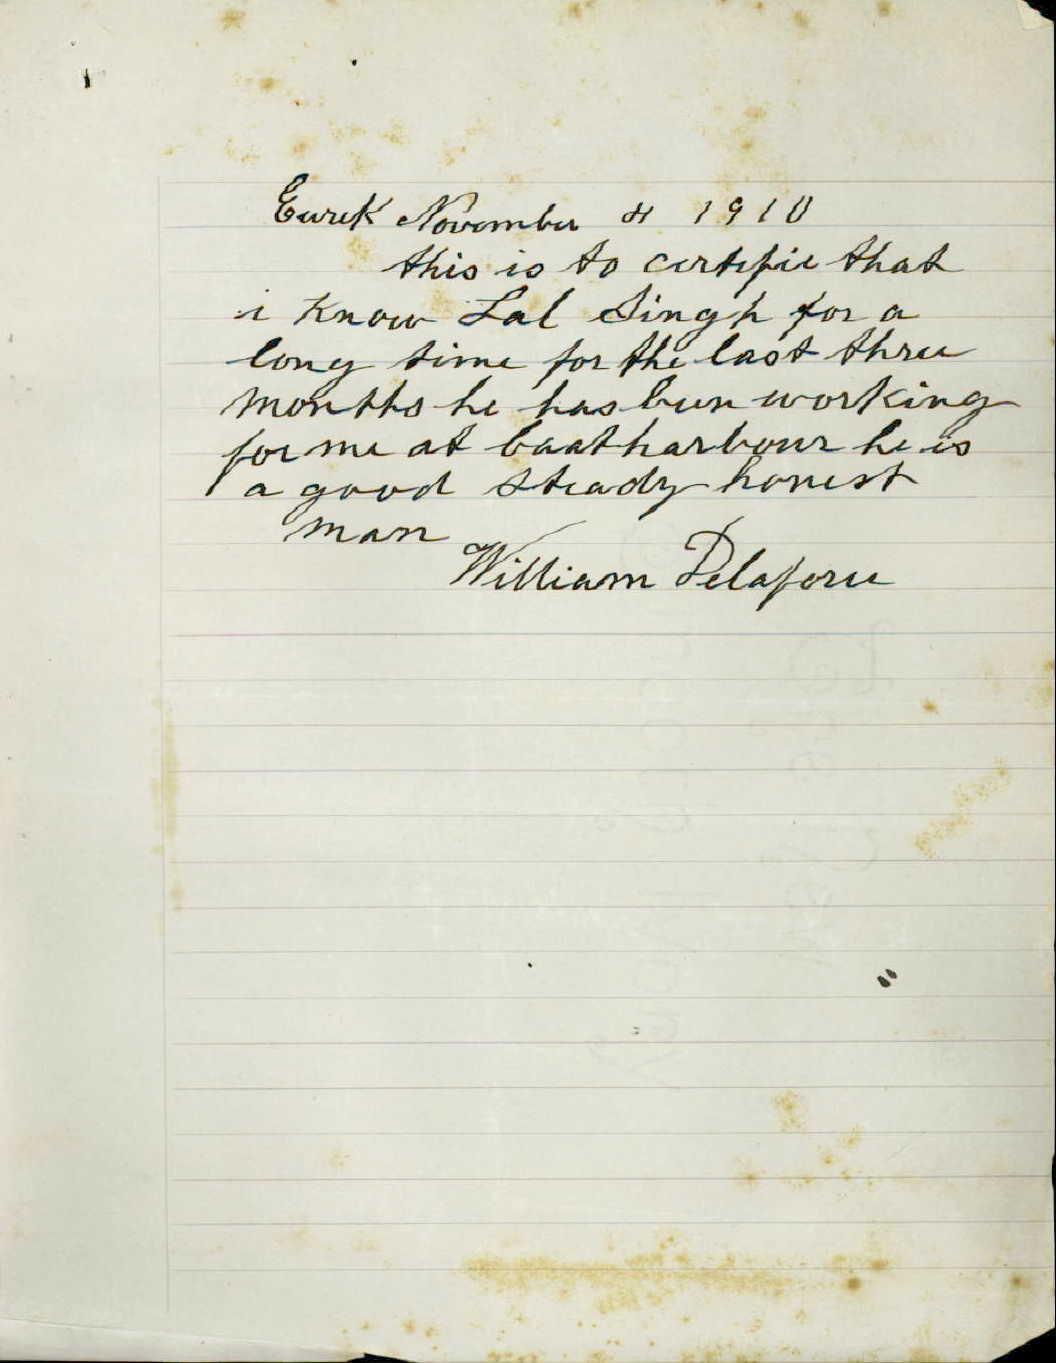 Eurek November 4 1910
this is to certifie that
i know Lal Singh for a
long time for the last three
months he has been working
for me at baatharbour he is
a good steady honest
man
William Delaforce